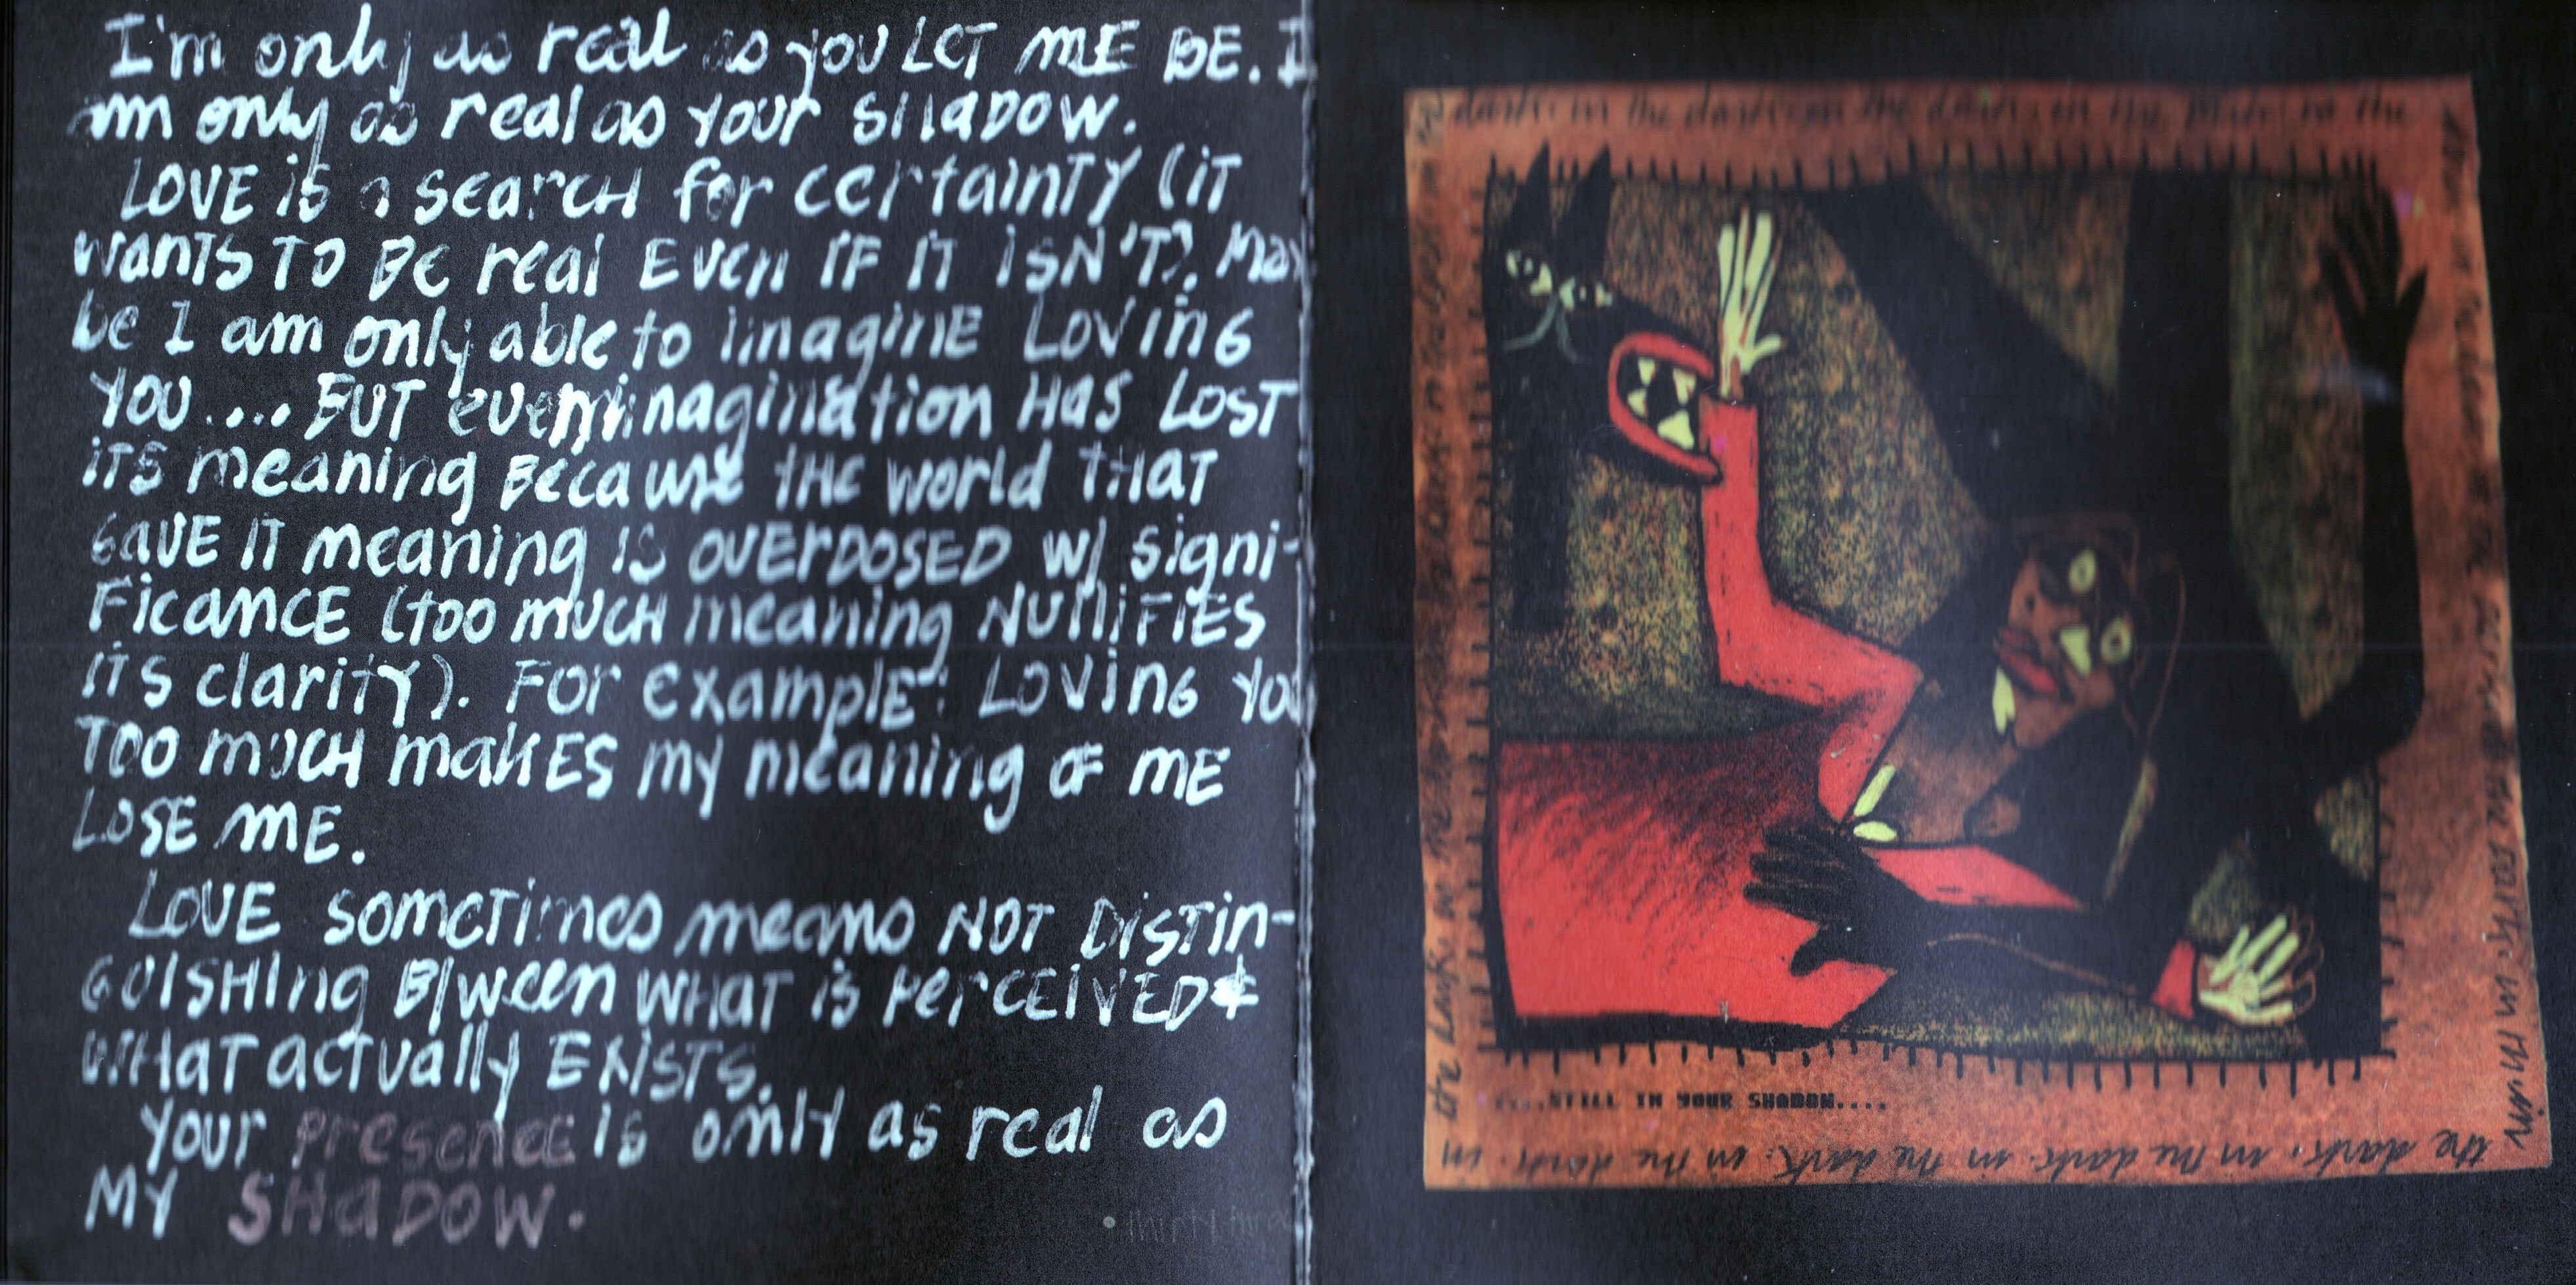 I'm only as real as you LET ME BE. I
am only as real as your SHADOW.
LOVE is a search for certainty (it
wants TO BE real EVEN IF IT ISN'T). May
be I am only able to imagine LOVING
YOU.... BUT even imagination HAS LOST
ITS meaning Because THE world THAT
GAVE IT meaning IS OVERDOSED w/ signi-
FICANCE (too much meaning NULLIFIES
ITS clarity). For example: LOVING YOU
TOO mUCH makes my meaning OF ME
LOSE ME.
LOVE sometimes means NOT DISTIN-
GUISHING B/ween WHAT is PERCEIVED &
WHAT actually EXISTS.
your presence is only as real as
MY SHADOW.
• thirty
dark. in the dark. in the dark. in the dark. in the
....STILL IN YOUR SHADOW....
the dark. in the dark. in the dark. in the dark. in the dark. in